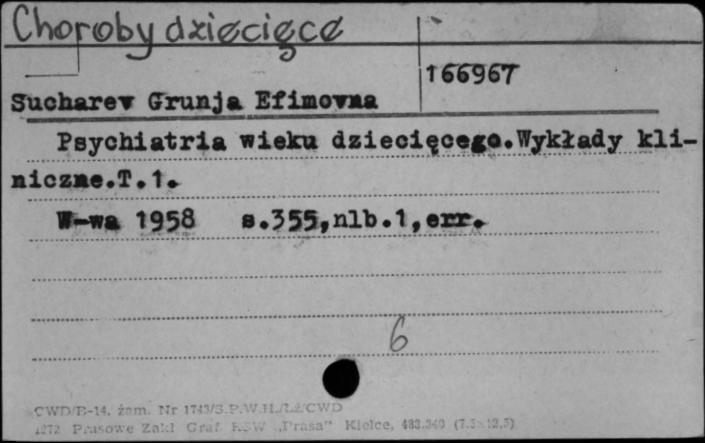 Choroby dziecięce
166967
Sucharev Grunja Efimovna
Psychiatria wieku dziecięcego.Wykłady kli-
niczne.T.1.
W-wa 1958 s.355,nlb.1,err.
6
CWD/B-14. zam. Nr 1743/S.P.W.H./Lż/CWD
1272 Prasowe Zakł Graf RSW „Prasa" Kielce, 483.340 (7.5×12.5)